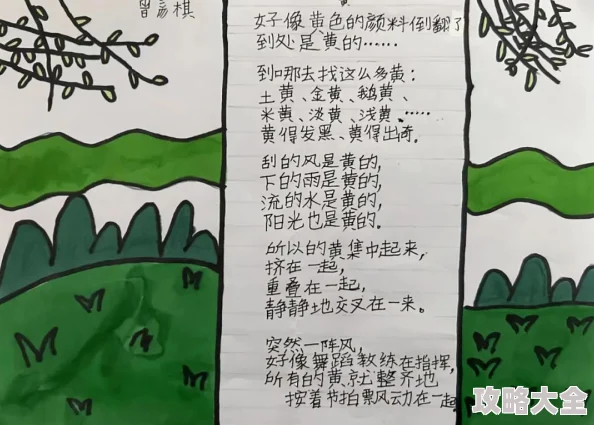 棋
好像黄色的颜料倒翻了
到处是黄的……
到哪去找这么多黄：
土黄、金黄、鹅黄、
米黄、淡黄、浅黄……
黄得发黑、黄得出奇。
刮的风是黄的，
下的雨是黄的，
流的水是黄的，
阳光也是黄的。
所以的黄集中起来，
挤在一起，
重叠在一起，
静静地交叉在一来。
突然一阵风，
好像舞蹈教练在指挥，
所有的黄就整齐地
按着节拍飘动在一起
攻略大全